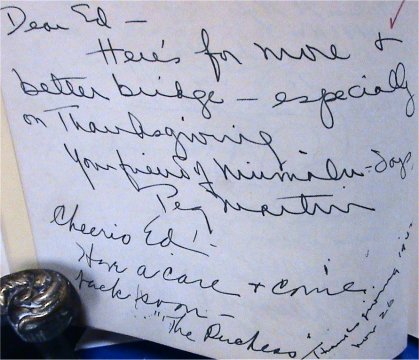 Dear Ed -
Here's for more +
better bridge - especially
on Thanksgiving
Your friend of days,
Peg Martin
Cheerio Ed! -
Have a care + come
back soon -
"The Duchess"
Nov 26